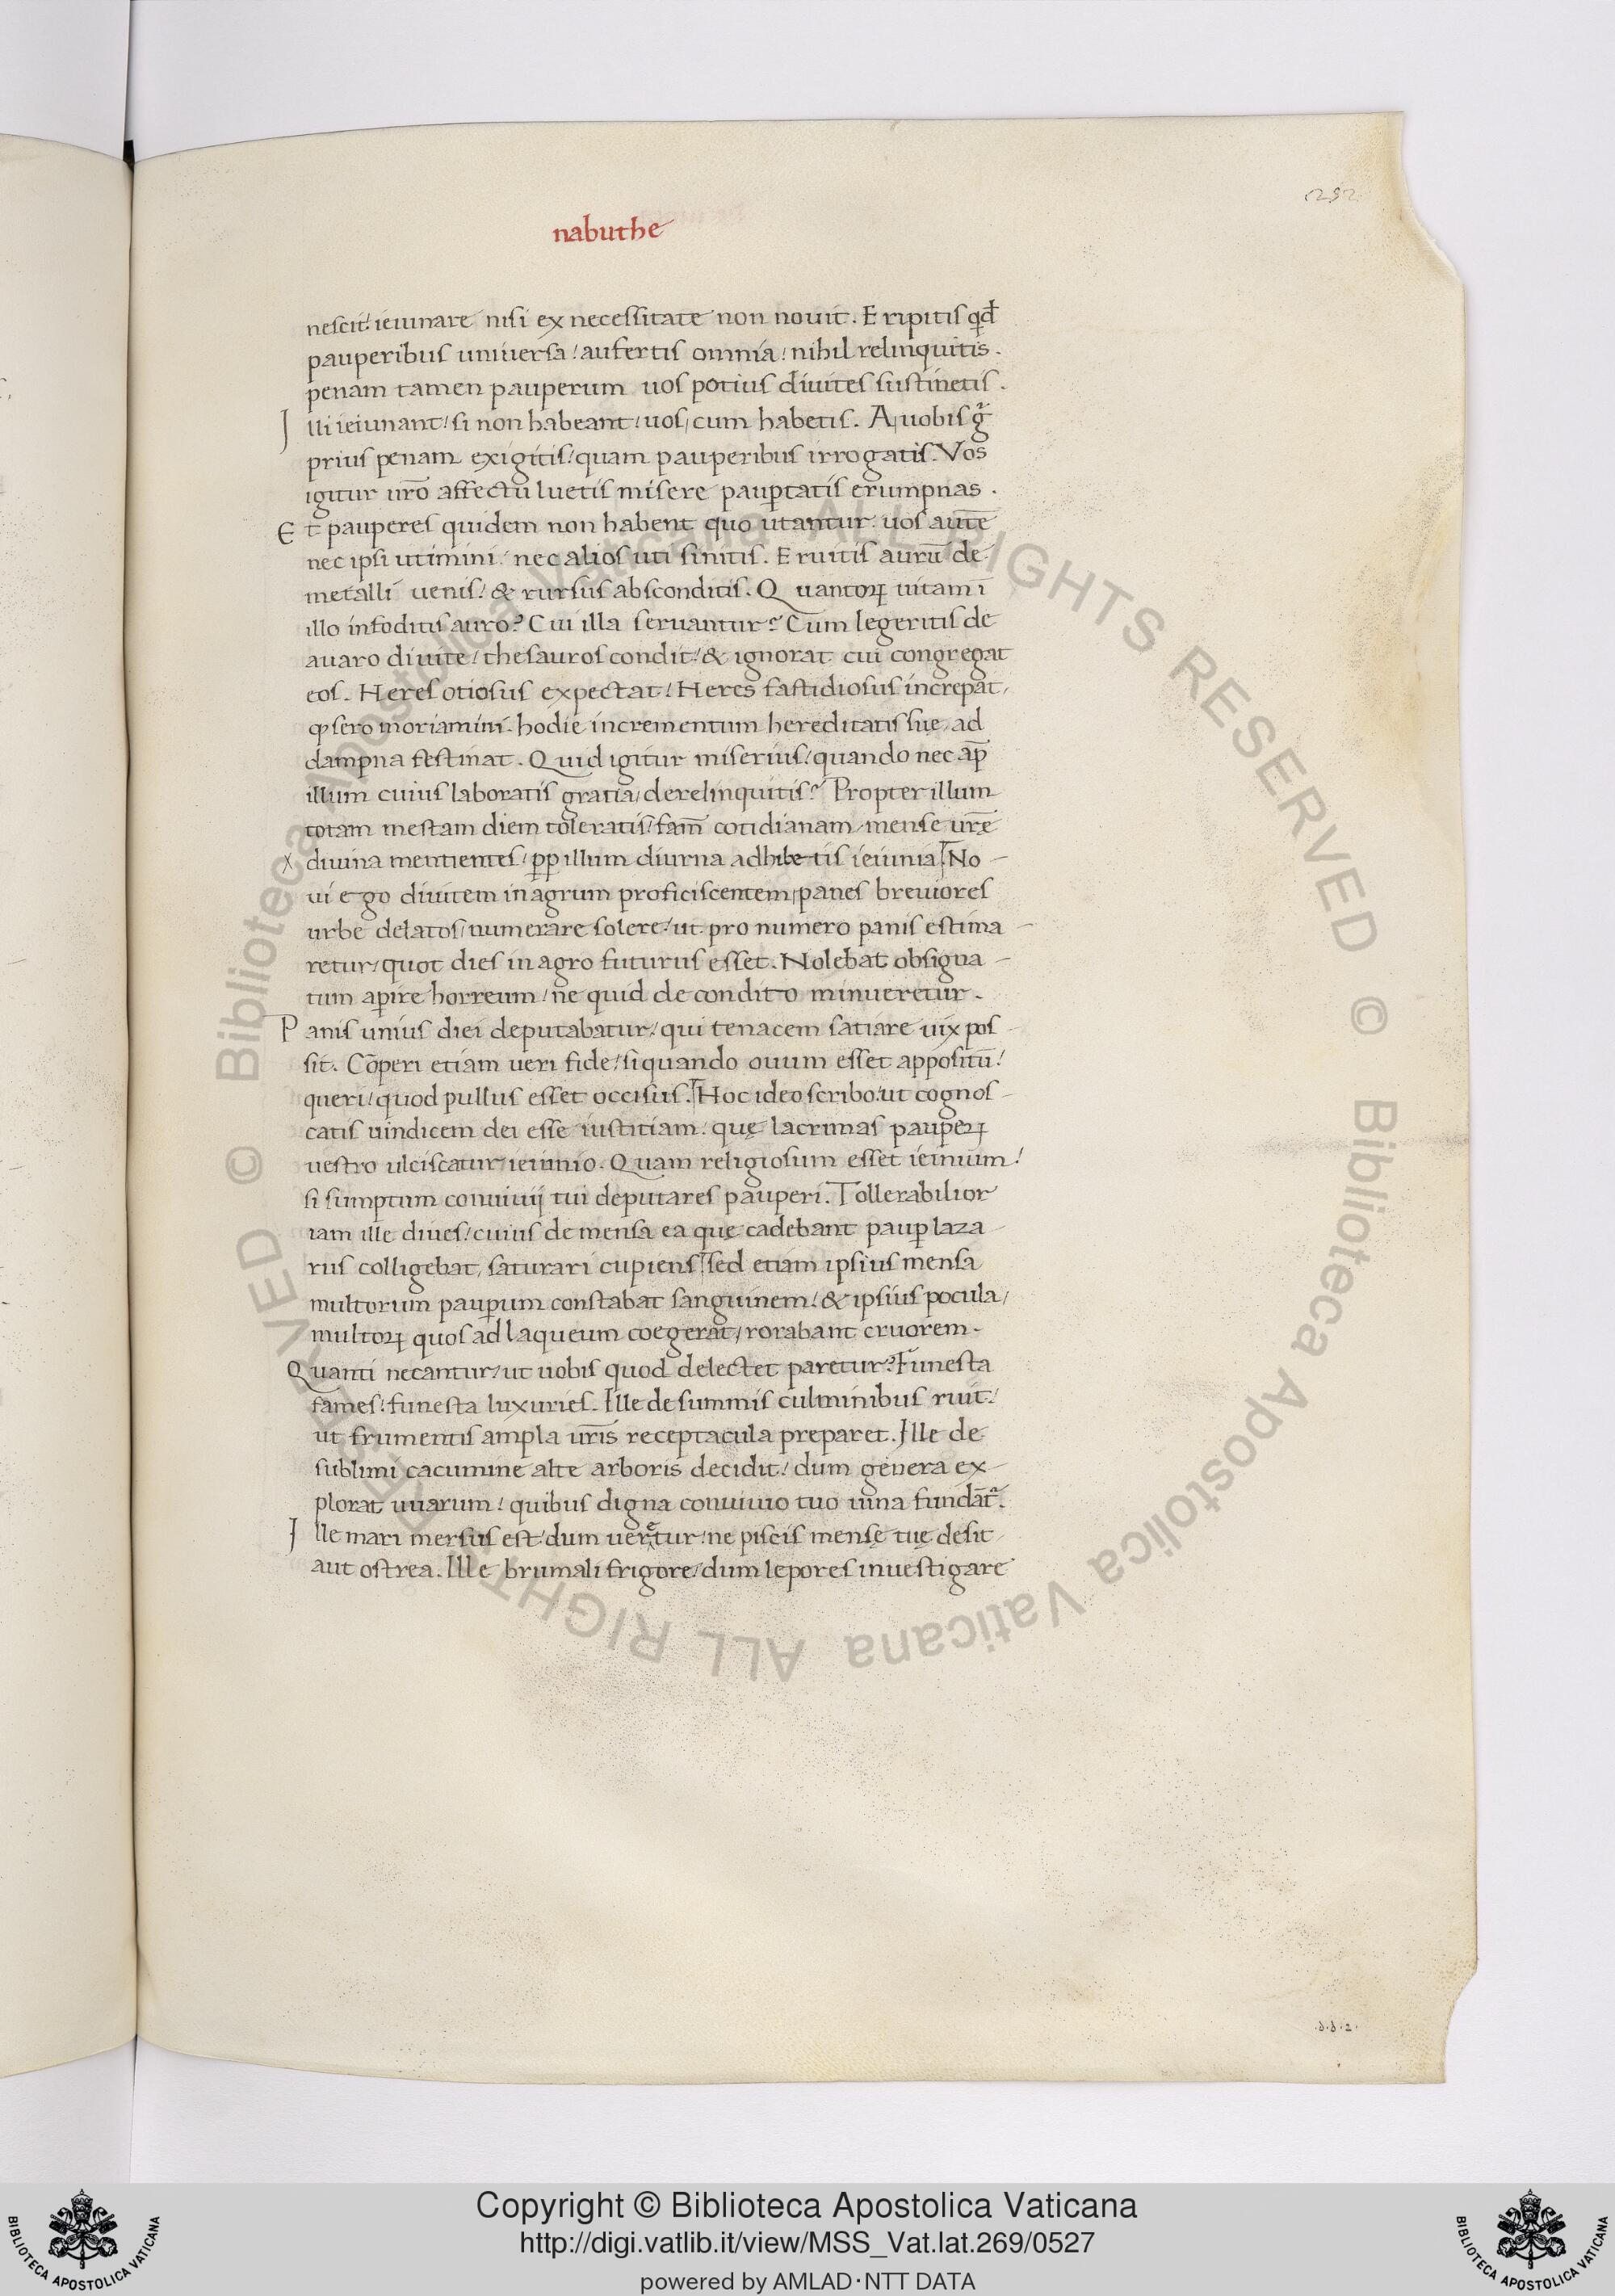 292
nabuthe
nescit! ieiunare nisi ex necessitate non nouit. Eripitis qd̄
pauperibus uniuersa! aufertis omnia! nihil relinquitis.
penam tamen pauperum uos potius diuites sustinetis.
Illi ieiunant! si non habeant! uos, cum habetis. A uobis g̃
prius penam exigitis! quam pauperibus irrogatis. Vos
igitur ur̄o affectu luetis misere paup̱tatis erumpnas.
Et pauperes quidem non habent quo utantur. uos autē
nec ipsi utimini. nec alios uti sinitis. Eruitis aurū de
metalli uenis! & rursus absconditis. Quantoꝝ uitam ī
illo infoditis auro? Cui illa seruantur? Cum legeritis de
auaro diuite! thesauros condit! & ignorat cui congregat
eos. Heres otiosus expectat! Heres fastidiosus increpat,
ꝙ sero moriamini. hodie incrementum hereditatis suę, ad
dampna festinat. Quid igitur miserius! quando nec ap̄
illum cuius laboratis gratia, derelinquitis? Propter illum
totam mestam diem toleratis! fam̄ cotidianam, mense ur̄ę
x diuina mentientes! pp̱ illum diurna adhibetis ieiunia. No-
ui ego diuitem in agrum proficiscentem, panes breuiores
urbe delatos, numerare solere! ut pro numero panis estima-
retur, quot dies in agro futurus esset. Nolebat obsigna-
tum aperire horreum! ne quid de condito minueretur.
Panis unius diei deputabatur! qui tenacem satiare uix pos-
sit. Cōperi etiam ueri fide! si quando ouum esset appositū!
queri! quod pullus esset occisus. Hoc ideo scribo! ut cognos-
catis uindicem dei esse iustitiam. quę lacrimas paup̱eꝝ
uestro ulciscatur ieiunio. Quam religiosum esset ieiunium!
si sumptum conuiuij tui deputares pauperi. Tollerabilior
iam ille diues! cuius de mensa ea quę cadebant paup̱ laza-
rus colligebat, saturari cupiens. sed etiam ipsius mensa
multorum paup̱um constabat sanguinem! & ipsius pocula,
multoꝝ quos ad laqueum coegerat, rorabant cruorem.
Quanti necantur! ut uobis quod delectet paretur? Funesta
fames! funesta luxuries. Ille de summis culminibus ruit!
ut frumentis ampla ur̄is receptacula preparet. Ille de
sublimi cacumine alte arboris decidit! dum genera ex-
plorat uuarum! quibus digna conuiuio tuo uina fundāt̃.
Ille mari mersus est! dum ueretur! ne piscis mensę tuę desit
aut ostrea. Ille brumali frigore! dum lepores inuestigare
.d.d.2.
© Biblioteca Apostolica Vaticana ALL RIGHTS RESERVED
© Biblioteca Apostolica Vaticana ALL RIGHTS RESERVED
Copyright © Biblioteca Apostolica Vaticana
http://digi.vatlib.it/view/MSS_Vat.lat.269/0527
powered by AMLAD·NTT DATA
BIBLIOTECA APOSTOLICA VATICANA
BIBLIOTECA APOSTOLICA VATICANA